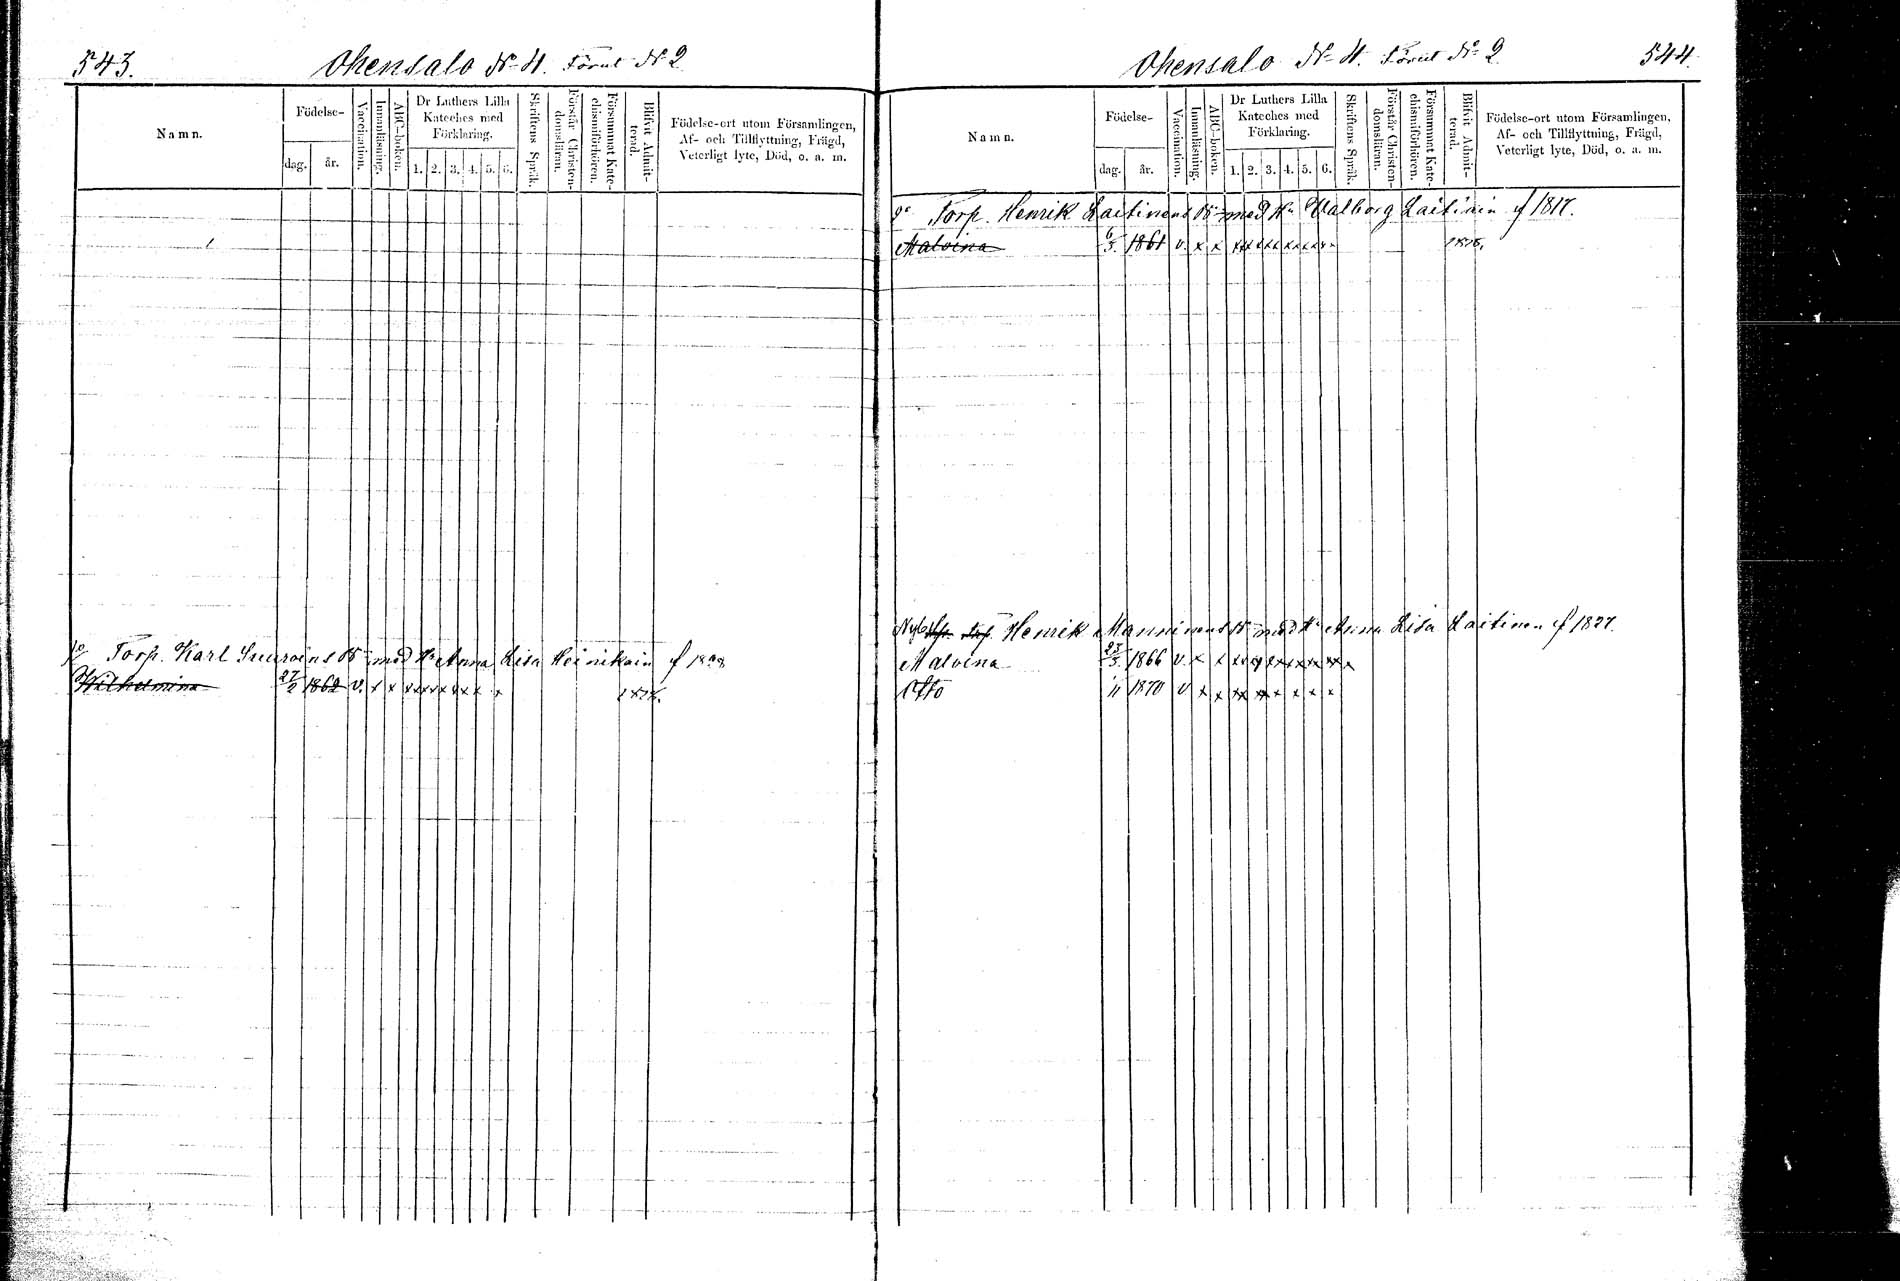 543.
Ohensalo No 4. Förut No 2
Namn.
Födelse-
dag.
år.
Vaccination.
Innanläsning.
ABC-boken.
Dr Luthers Lilla
Kateches med
Förklaring.
1. 2. 3. 4. 5. 6.
Skriftens Språk.
Förstår Christen-
domsläran.
Försummat Kate-
chismiförhören.
Blifvit Admit-
terad.
Födelse-ort utom Församlingen,
Af- och Tillflyttning, Frägd,
Veterligt lyte, Död, o. a. m.
Torp. Karl Suuroins Br med Hu Anna Lisa Heinikain f
Wilhelmina 27/2 1862 v. x x xx xx xx xx x x
Ohensalo No 4. Förut No 2
544.
Namn.
Födelse-
dag.
år.
Vaccination.
Innanläsning.
ABC-boken.
Dr Luthers Lilla
Kateches med
Förklaring.
1. 2. 3. 4. 5. 6.
Skriftens Språk.
Förstår Christen-
domsläran.
Försummat Kate-
chismiförhören.
Blifvit Admit-
terad.
Födelse-ort utom Församlingen,
Af- och Tillflyttning, Frägd,
Veterligt lyte, Död, o. a. m.
Torp. Henrik Laitinens Br med Hu Walborg Laitinin f 1817.
Malvina 6/5 1861 v. x x xx xxx xxxxxx
Nyb Henrik Manninens Br med Hu Anna Lisa Laitinen f 1827.
Malvina 23/5 1866 v. x x xx xx xx xx xx xx x
Otto 1870 v x x xx xx x x x x